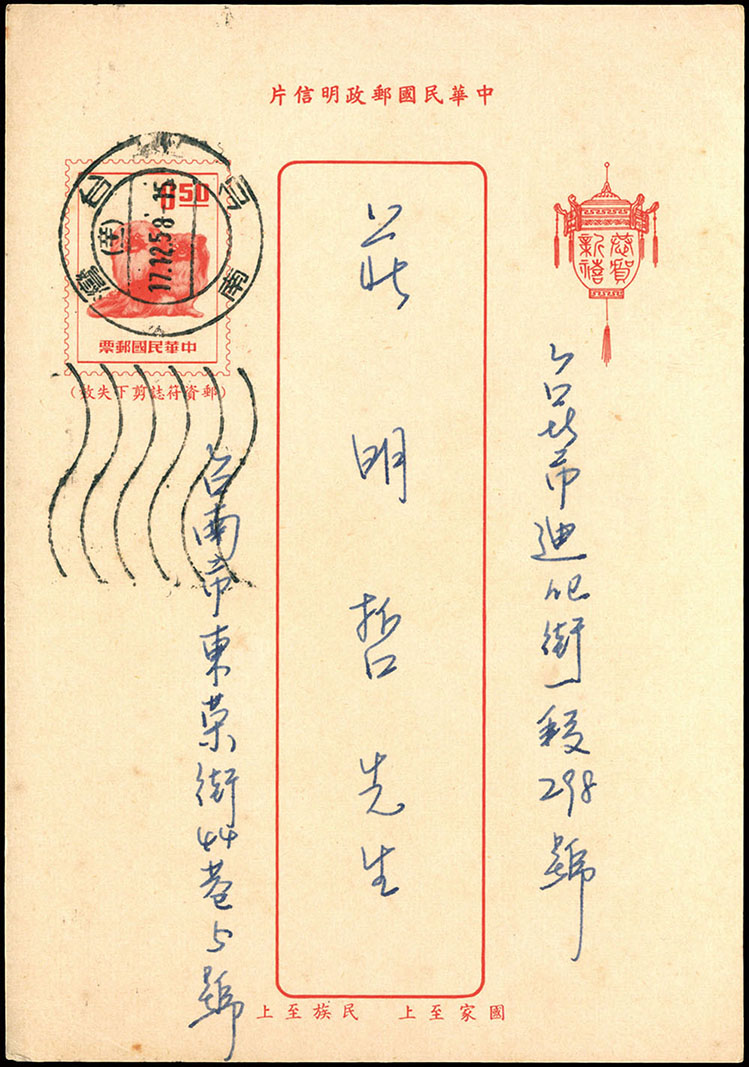 中華民國郵政明信片
恭賀
新禧
台北市迪化街一段298號
莊明哲先生
台南市東榮街44巷5號
50
中華民國郵票
(郵資符誌剪下失效)
台灣
台南
17.12.58.-15
國家至上 民族至上